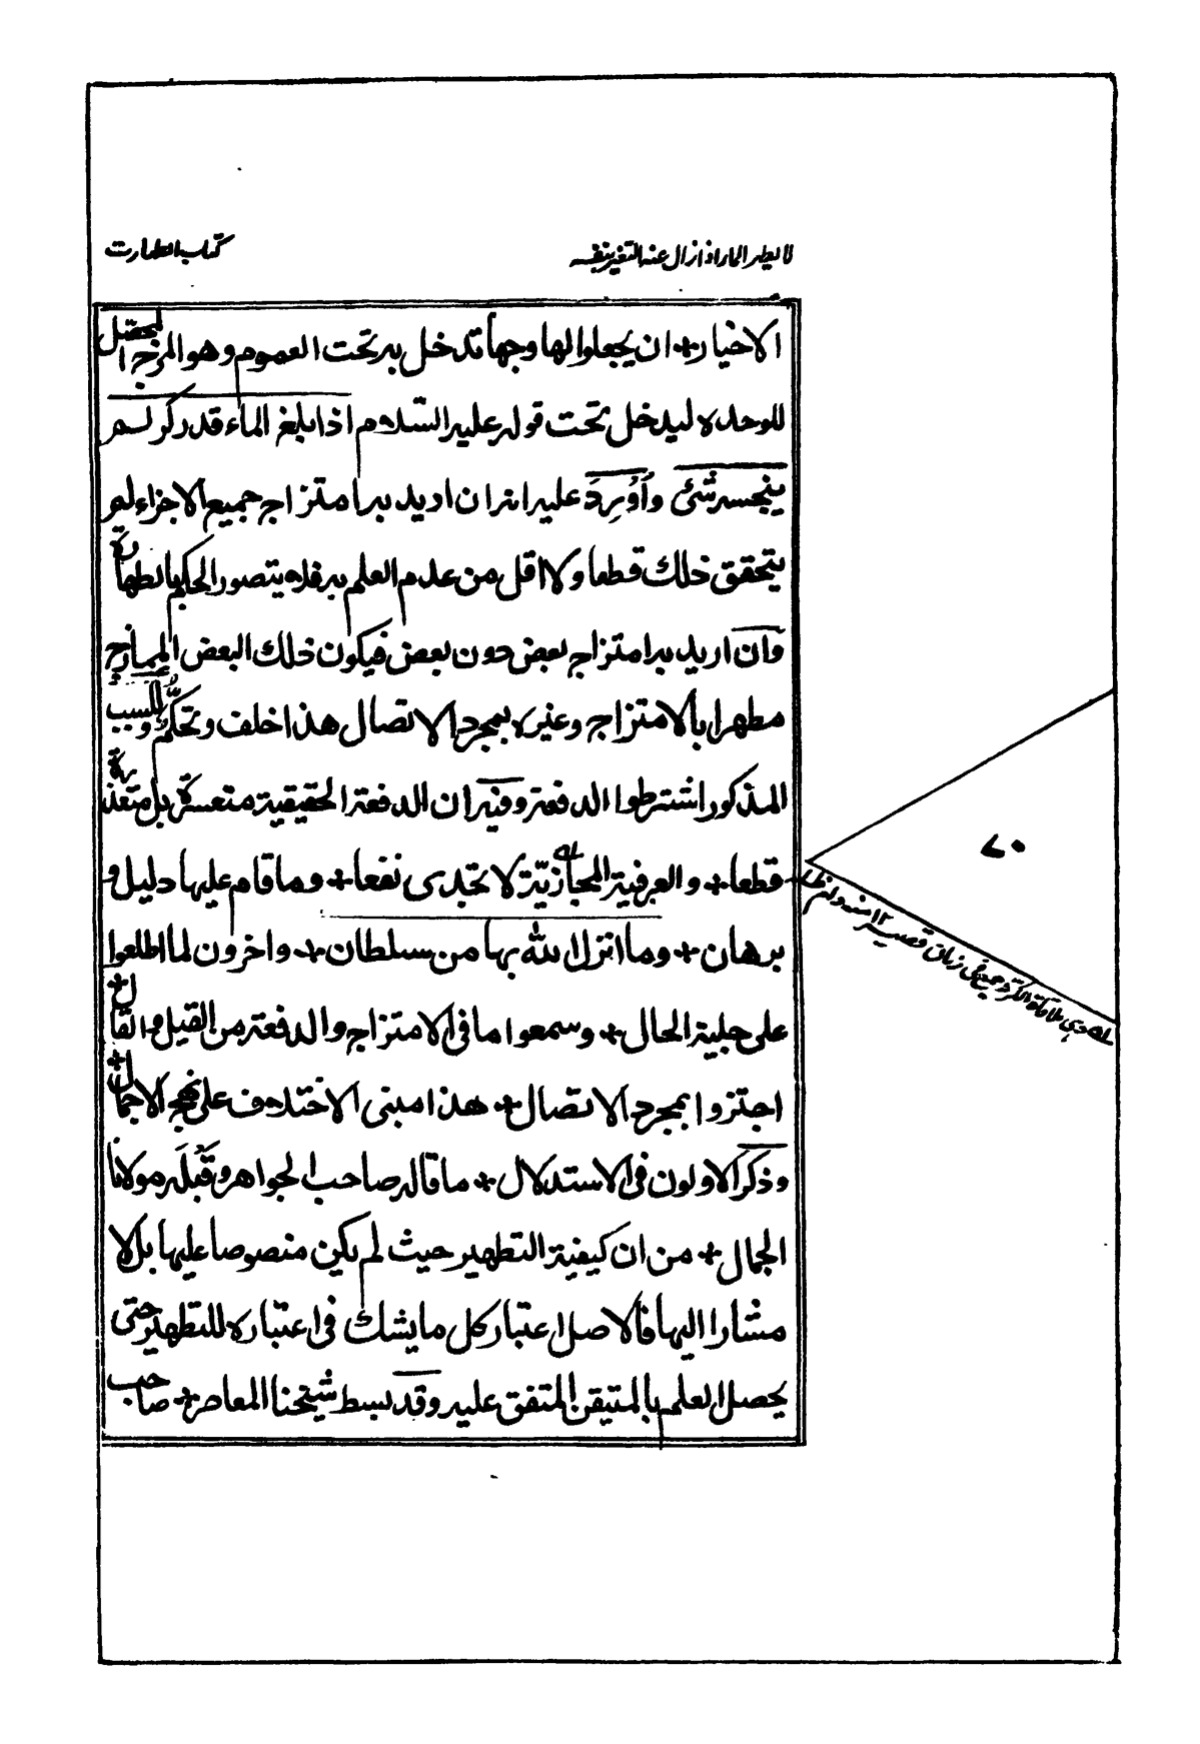 لا يطهر الماء اذا زال عنه التغير بنفسه
كتاب الطهارت
الاخيار + ان يجعلوا لها وجها تدخل به تحت العموم وهو المزج المحصّل
للوحدة ليدخل تحت قوله عليه السّلام اذا بلغ الماء قدر كر لم
ينجسه شئ وأُورِدَ عليه انه ان اريد به امتزاج جميع الاجزاء لم
يتحقق ذلك قطعا ولا اقل من عدم العلم به فلا يتصور الحكم بالطهارة
وان اريد به امتزاج بعض دون بعض فيكون ذلك البعض الممازج
مطهرا بالامتزاج وغيره بمجرد الاتصال هذا خلف وتحكّم وللسبب
المذكور اشترطوا الدفعة وفيه ان الدفعة الحقيقية متعسرة بل متعذرة
قطعا + والعرفية المجازيّة لا تجدى نفعا + وما قام عليها دليل و
برهان + وما انزل الله بها من سلطان + واخرون لما اطلعوا
على جلية الحال + وسمعوا ما فى الامتزاج والدفعة من القيل والقال +
اجتزوا بمجرد الاتصال + هذا مبنى الاختلاف على نهج الاجمال +
وذكر الاولون فى الاستدلال + ما قاله صاحب الجواهر وقَبْلَه مولانا
الجمال + من ان كيفية التطهير حيث لم يكن منصوصا عليها بل لا
مشارا اليها فالاصل اعتبار كل ما يشك فى اعتباره للتطهير حتى
يحصل العلم بالمتيقن المتفق عليه وقد بسط شيخنا المعاصر + صاحب
٧٠